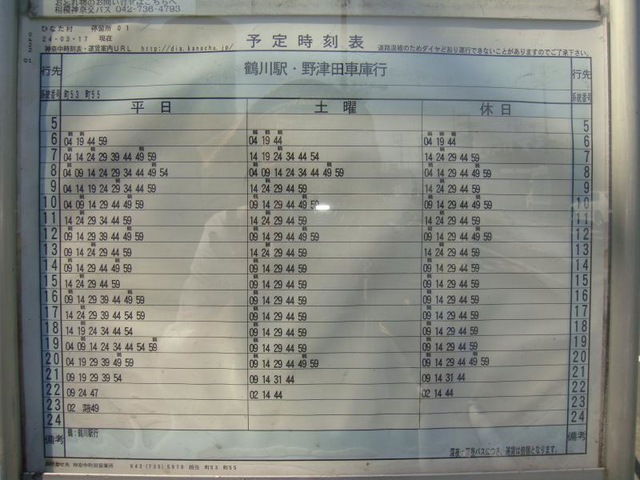 お忘れ物のお問い合せはこちらへ
相模神奈交バス 042-736-4793
ひなた村 停留所 01
24-03-17 現在
神奈中時刻表・運賃案内URL http://dia.kanachu.jp/
予定時刻表
道路混雑のためダイヤどおり運行できないことがありますのでご了承下さい。
行先 鶴川駅・野津田車庫行 行先
系統番号 町53 町55 系統番号
平日 土曜 休日
5 5
6 04 19 44 59 04 19 44 04 19 44 6
7 04 14 24 29 39 44 49 59 14 19 24 34 44 54 14 24 29 44 59 7
8 04 09 14 24 29 34 44 49 54 04 09 14 24 34 44 49 59 04 14 29 44 49 59 8
9 04 14 19 24 29 34 44 59 14 24 29 44 59 14 24 29 44 59 9
10 04 09 14 29 44 49 59 09 14 29 44 49 59 09 14 29 44 49 59 10
11 14 24 29 34 44 59 14 24 29 44 59 14 24 29 44 59 11
12 09 14 29 39 44 49 59 09 14 29 44 49 59 09 14 29 44 49 59 12
13 09 14 24 29 44 59 14 24 29 44 59 14 24 29 44 59 13
14 09 14 29 44 49 59 09 14 29 44 59 09 14 29 44 59 14
15 14 24 29 44 59 09 14 29 44 59 09 14 29 44 59 15
16 09 14 29 39 44 49 59 09 14 29 44 59 09 14 29 44 59 16
17 14 24 29 39 44 54 59 09 14 29 44 59 09 14 29 44 59 17
18 14 19 24 34 44 54 09 14 29 44 59 09 14 29 44 59 18
19 04 09 14 24 34 44 54 59 09 14 29 44 59 09 14 29 44 59 19
20 04 19 29 39 49 59 09 14 29 44 49 59 09 14 29 44 49 59 20
21 09 19 29 39 54 09 14 31 44 09 14 31 44 21
22 09 24 47 02 14 44 02 14 44 22
23 02 深49 23
24 24
備考 鶴：鶴川駅行 備考
深夜：深夜バスにつき、運賃は倍額となります。
神奈中町田営業所
町53 町55